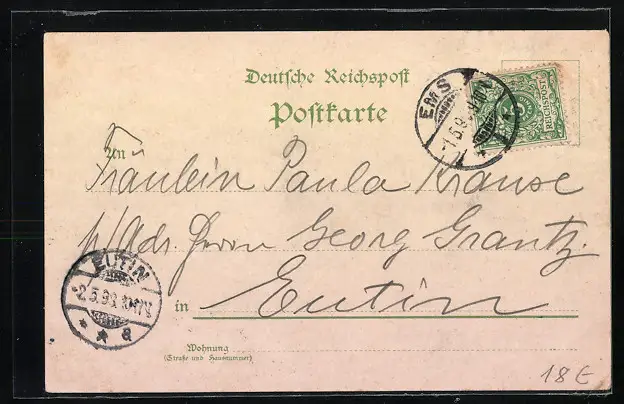 Deutsche Reichspost
Postkarte
EMS
1.5.9
REICHSPOST
An
Fräulein Paula Krause
p/Adr. Herrn Georg Grantz.
in Eutin
EUTIN
2.5.98
* * a
Wohnung
(Straße und Hausnummer)
18 €